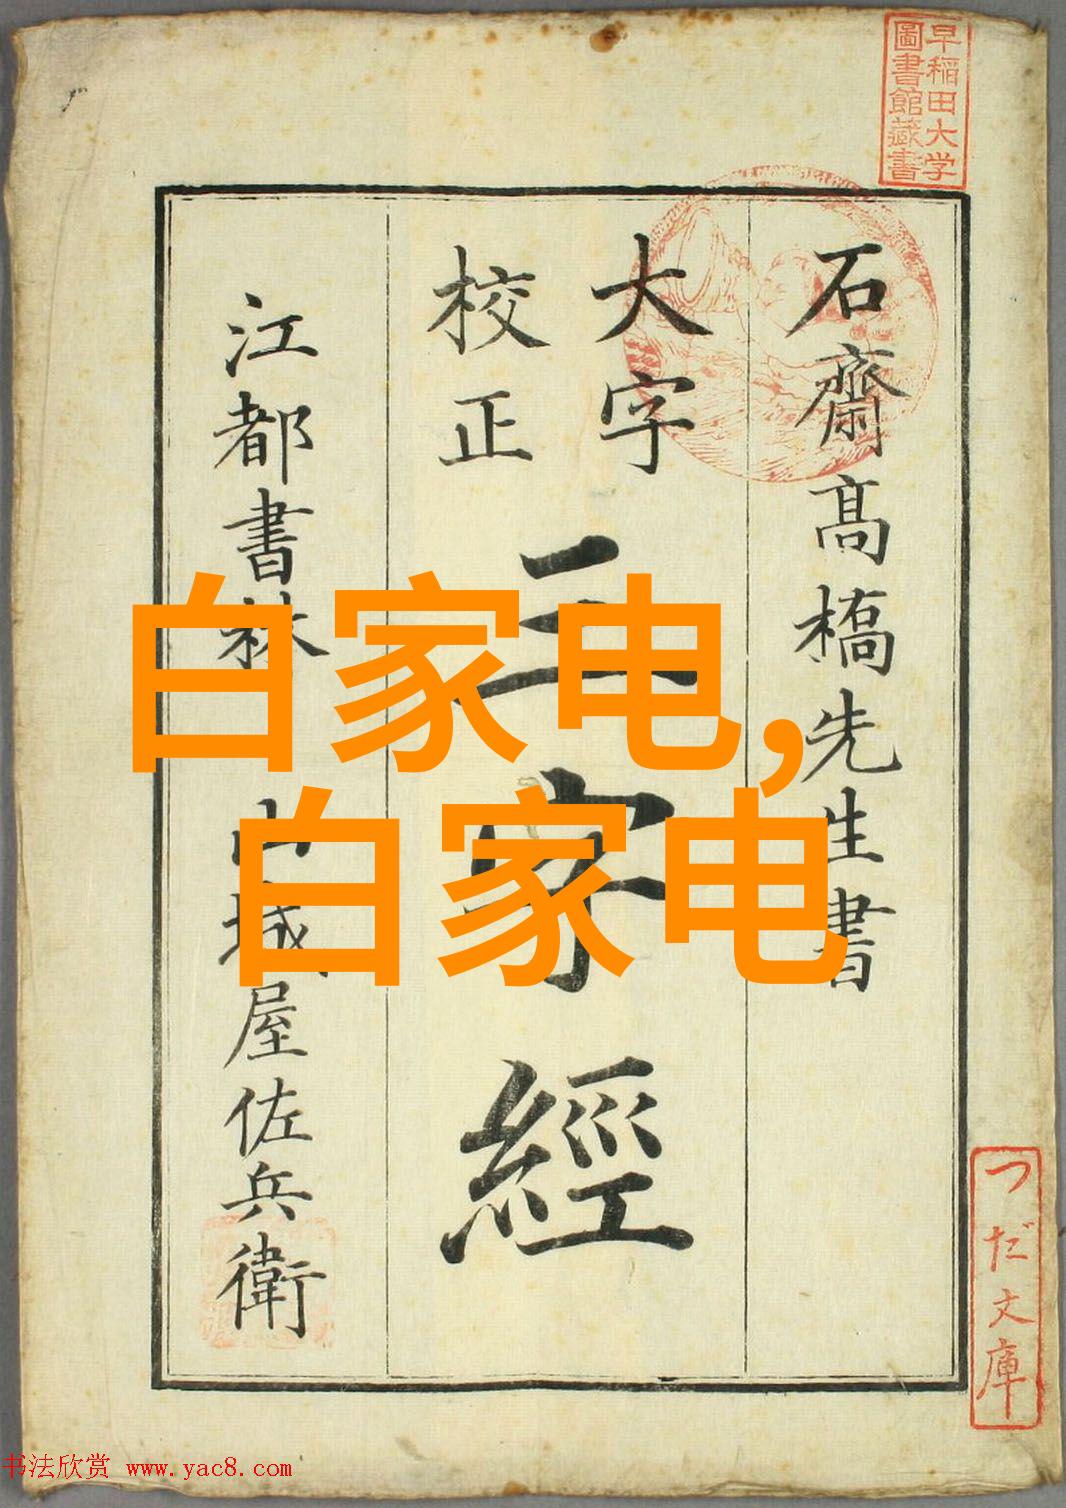 早稲田大学
圖書館藏書
石齋高橋先生書
大字
校正
三字經
江都書林 山城屋佐兵衛
白家电,
白家电
つだ文庫
书法欣赏 www.yac8.com